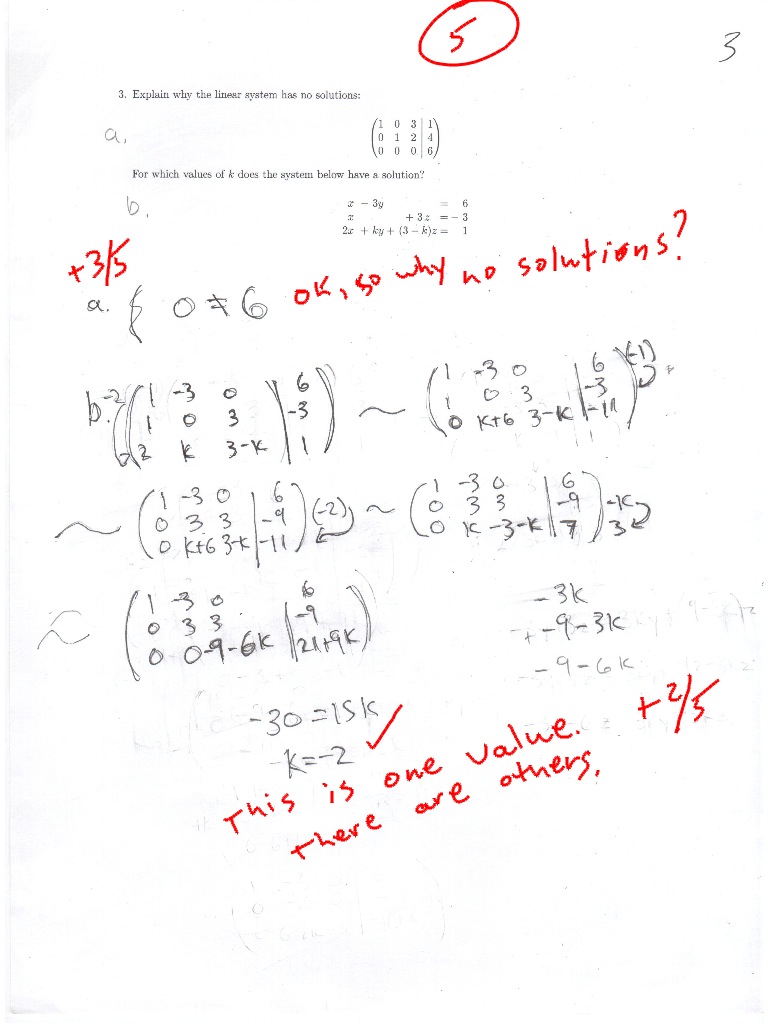 5
3
3. Explain why the linear system has no solutions:
a.
1 0 3 | 1
0 1 2 | 4
0 0 0 | 6
For which values of k does the system below have a solution?
b.
x − 3y = 6
x + 3z = − 3
2x + ky + (3 − k)z = 1
+3/5
a. { 0 ≠ 6 OK, so why no solutions?
b. -2
( 1 -3 0 | 6
1 0 3 | -3
2 k 3-k | 1 )
~
( 1 -3 0 | 6
1 0 3 | -3
0 k+6 3-k | -11 ) (-1)
~
( 1 -3 0 | 6
0 3 3 | -9
0 k+6 3-k | -11 ) (-2)
~
( 1 -3 0 | 6
0 3 3 | -9
0 k -3-k | 7 ) -k
3
~
( 1 -3 0 | 6
0 3 3 | -9
0 0 -9-6k | 21+9k )
-3k
+-9-3k
-9-6k
-30=15k ✓
k=-2
+2/5
This is one value.
There are others.